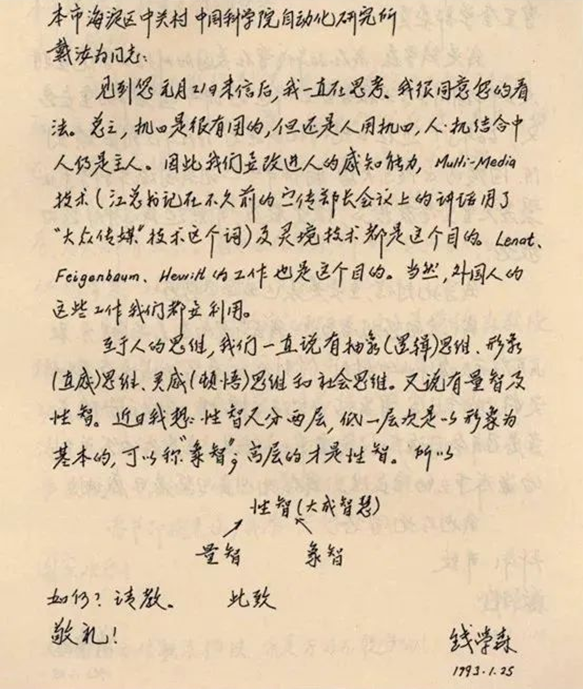 本市海淀区中关村 中国科学院自动化研究所
戴汝为同志：
见到您元月21日来信后，我一直在思考。我很同意您的看
法。总之，机口是很有用的，但还是人用机口，人·机结合中
人仍是主人。因此我们要改进人的感知能力，Multi-Media
技术（江总书记在不久前的宣传部长会议上的讲话用了
“大众传媒”技术这个词）及灵境技术都是这个目的。Lenat、
Feigenbaum、Hewitt的工作也是这个目的。当然，外国人的
这些工作我们都要利用。
至于人的思维，我们一直说有抽象（逻辑）思维、形象
（直感）思维、灵感（顿悟）思维和社会思维。又说有量智及
性智。近日我想：性智又分两层，低一层次是以形象为
基本的，可以称“象智”；高层的才是性智。所以
性智（大成智慧）
量智 象智
如何？请教。 此致
敬礼！
钱学森
1993.1.25